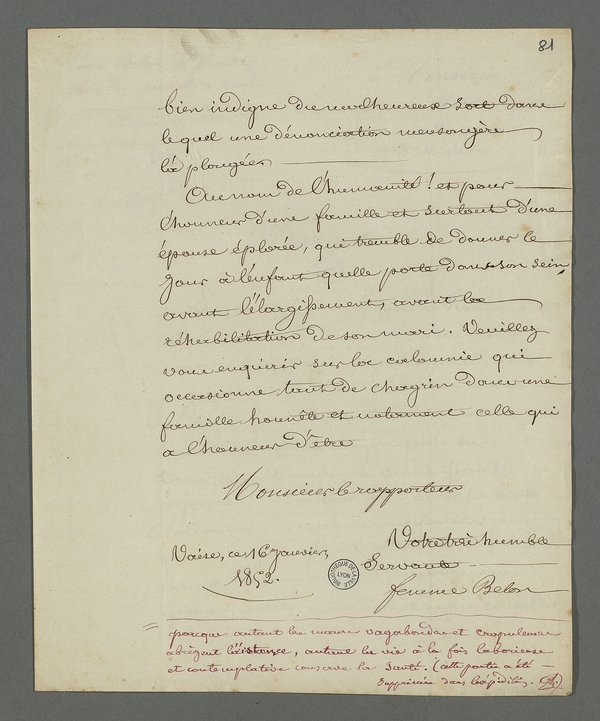 81
bien indigne du malheureux sort dans
lequel une dénonciation mensongère
l'a plongée.
Au nom de l'humanité ! et pour
l'honneur d'une famille et surtout d'une
épouse éplorée, qui tremble de donner le
jour à l'enfant quelle porte dans son sein,
avant l'élargissement, avant la
réhabilitation de son mari. Veuillez
vous enquérir sur la calomnie qui
occasionne tant de chagrin dans une
famille honnête et notament celle qui
a l'honneur d'être
Monsieur le rapporteur
Votre très humble
Servante
Vaise, ce 16 Janvier
1852.
femme Belon
BIBLIOTHEQUE DE LA VILLE LYON
= parceque autant les mœurs vagabondes et crapuleuses
abrègent l'éxistance, autant la vie à la fois laborieuse
et contemplative conserve la santé. (cette partie a été
supprimée dans l'expédition.